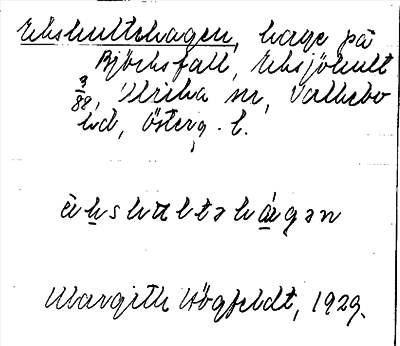 Ekshultehagen, hage på
Björksfall, Eksjöhult
3/88, Ulrika sn, Valkebo
hd, Österg. l.
èkshʉltəhágən
Margith Högfeldt, 1929.